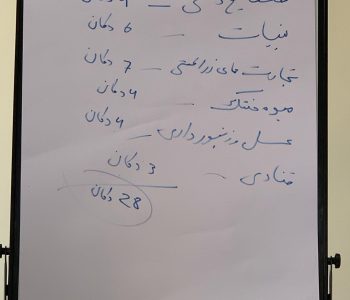 صنایع دستی - 4 دکان
لبنیات - 6 دکان
تجارت های زراعتی - 7 دکان
میوه خشک - 4 دکان
عسل و زنبورداری - 4 دکان
قنادی - 3 دکان
28 دکان